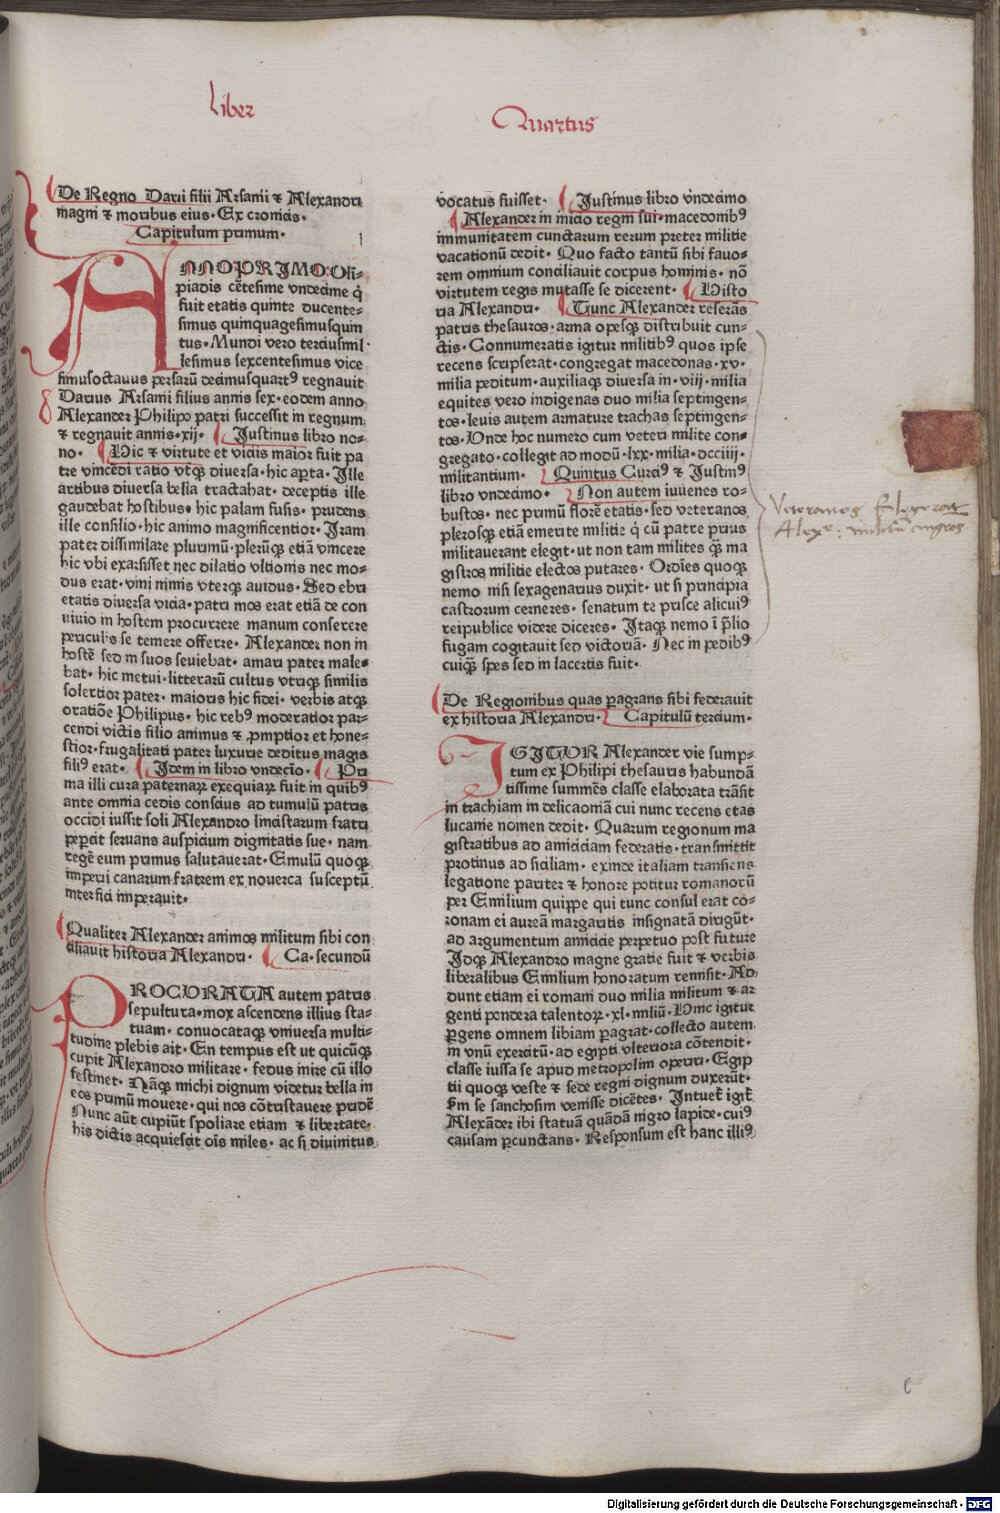 Liber
Quartus
De Regno Darii filii Arsami ⁊ Alexandri
magni ⁊ moribus eius· Ex cronicis·
Capitulum primum·
ANNO PRIMO Oli-
piadis cētesime vndecime q̇
fuit etatis quinte ducente-
simus quinquagesimusquin
tus· Mundi vero terciusmil-
lesimus sexcentesimus vice
simusoctauus persarū decimusquartꝰ regnauit
Darius Arsami filius annis sex· eodem anno
Alexander Philipo patri successit in regnum
⁊ regnauit annis·xij· Justinus libro no-
no· Hic ⁊ virtute et viciis maior fuit pa
tre vincēdi ratio vtq̄ꝫ diuersa· hic aꝑta· Ille
artibus diuersa bella tractabat· deceptis ille
gaudebat hostibus· hic palam fusis· prudens
ille consilio· hic animo magnificentior· Iram
pater dissimilare plurimū· plerūqꝫ etiā vincere
hic vbi exarsisset nec dilatio vltionis nec mo-
dus erat· vini nimis vterqꝫ auidus· Sed ebri
etatis diuersa vicia· patri mos erat etiā de con
uiuio in hostem procurrere manum conserere
periculis se temere offerre· Alexander non in
hostē sed in suos seuiebat· amari pater male-
bat· hic metui· litterarū cultus vtriqꝫ similis
solertior pater· maioris hic fidei· verbis atqꝫ
oratiōe Philipus· hic rebꝰ moderatior par-
cendi victis filio animus ⁊ ꝓmptior et hone-
stior· frugalitati pater luxurie deditus magis
filiꝰ erat· Idem in libro vndecīo· Pri
ma illi cura paternaꝝ exequiaꝝ fuit in quibꝰ
ante omnia cedis conscius ad tumulū patris
occidi iussit soli Alexandro lincistarum fratri
peꝑcit seruans auspicium dignitatis sue· nam
regē eum primus salutauerat· Emulū quoqꝫ
imperij canarum fratrem ex nouerca susceptū
interfici imperauit·
Qualiter Alexander animos militum sibi con
ciliauit historia Alexandri· Ca· secundū
PROCURATA autem patris
sepultura· mox ascendens illius sta-
tuam· conuocataqꝫ vniuersa multi-
tudine plebis ait· En tempus est ut quicūqꝫ
cupit Alexandro militare· fedus inire cū illo
festinet· Nāqꝫ michi dignum videtur bella in
eos primū mouere· qui nos cōtristauere pridē
Nunc aūt cupiūt spoliare etiam ⁊ libertate·
his dictis acquiescāt oīs miles· ac si diuinitus
vocatus fuisset· Justinus libro vndecimo
Alexander in inicio regni sui· macedonibꝰ
immunitatem cunctarum rerum preter militie
vacationū dedit· Quo facto tantū sibi fauo-
rem omnium conciliauit corpus hominis· nō
virtutem regis mutasse se dicerent· Histo
ria Alexandri· Tunc Alexander reserās
patris thesauros· arma opesqꝫ distribuit cun-
ctis· Connumeratis igitur militibꝰ quos ipse
recens scripserat· congregat macedonas·xv·
milia peditum· auxiliaqꝫ diuersa in·viij·milia
equites vero indigenas duo milia septingen-
tos· leuis autem armature trachas septingen-
tos· Unde hoc numero cum veteri milite con-
gregato· collegit ad modū·lxx·milia·dcciiij·
militantium· Quintus Curciꝰ ⁊ Justinꝰ
libro vndecimo· Non autem iuuenes ro-
bustos· nec primū florē etatis· sed veteranos
plerosqꝫ etiā emerite militie q̇ cū patre prius
militauerant elegit· ut non tam milites qꝫ̄ ma
gistros militie electos putares· Ordīes quoqꝫ
nemo nisi sexagenarius duxit· ut si principia
castrorum cerneres· senatum te prisce alicuiꝰ
reipublice videre diceres· Itaqꝫ nemo ī p̄lio
fugam cogitauit sed victoriā· Nec in pedibꝰ
cuiqꝫ spes sed in lacertis fuit·
De Regionibus quas ꝑagrans sibi federauit
ex historia Alexandri· Capitulū tercium·
IGITUR Alexander vie sump-
tum ex Philipi thesauris habundā
tissime summēs classe elaborata trāsit
in trachiam in delicaoniā cui nunc recens etas
lucanie nomen dedit· Quarum regionum ma
gistratibus ad amiciciam federatis· transmittit
protinus ad siciliam· exinde italiam transiens
legatione pariter ⁊ honore potitur romanorū
per Emilium quippe qui tunc consul erat co-
ronam ei aureā margaritis insignatā dirigūt·
ad argumentum amicicie perpetuo post future
Idqꝫ Alexandro magne gratie fuit ⁊ verbis
liberalibus Emilium honoratum remisit· Ad
dunt etiam ei romani duo milia militum ⁊ ar
genti pondera talentoꝝ·xl·miliū· Hinc igitur
ꝑgens omnem libiam ꝑagrat· collecto autem
in vnū exercitū· ad egipti vlteriora cōtendit·
classe iussa se apud metropolim operiri· Egip
tii quoqꝫ veste ⁊ sede regni dignum duxerūt·
Em se sanchosim venisse dicētes· Intuet̄ igit̄
Alexāder ibi statuā quādā nigro lapide· cuiꝰ
causam ꝑcunctans· Responsum est hanc illiꝰ
Veteranos eligerat
Alexr: militū mgros
Digitalisierung gefördert durch die Deutsche Forschungsgemeinschaft - DFG